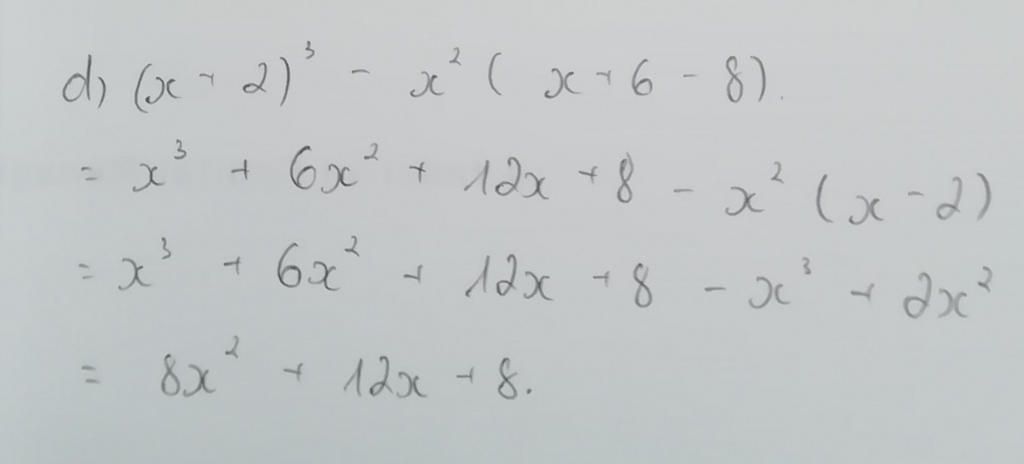 d) (x + 2)³ - x² ( x + 6 - 8).
= x³ + 6x² + 12x + 8 - x² (x - 2)
= x³ + 6x² + 12x + 8 - x³ + 2x²
= 8x² + 12x + 8.